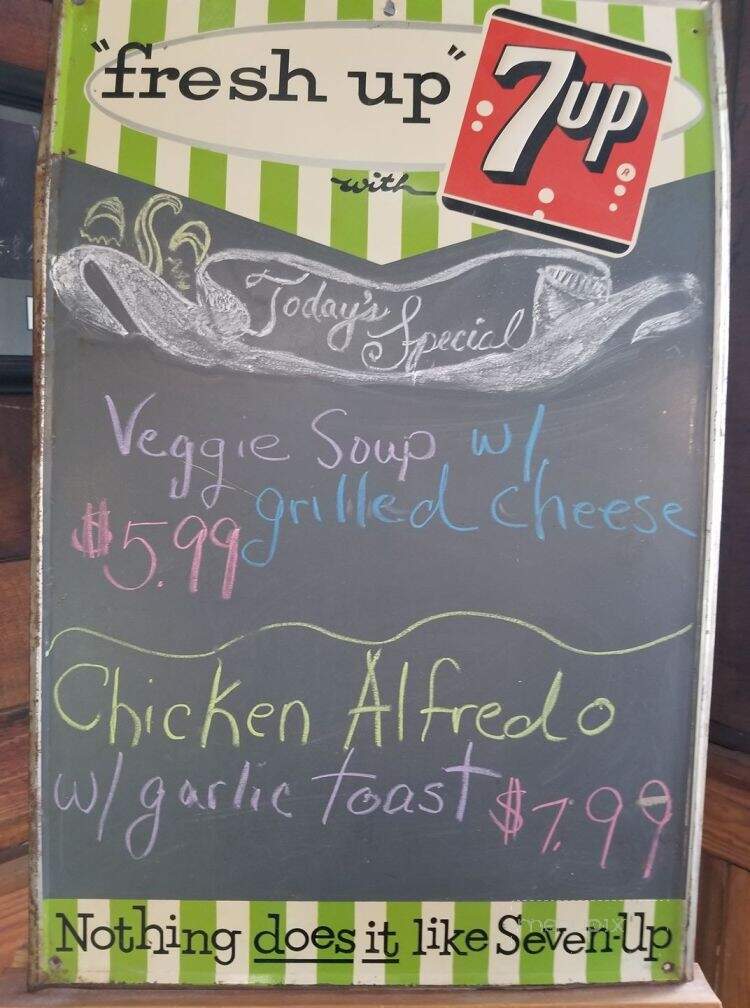 "fresh up"
with
7up
Today's Special
Veggie Soup w/
grilled cheese
$5.99
Chicken Alfredo
w/ garlic toast $7.99
Nothing does it like Seven-Up